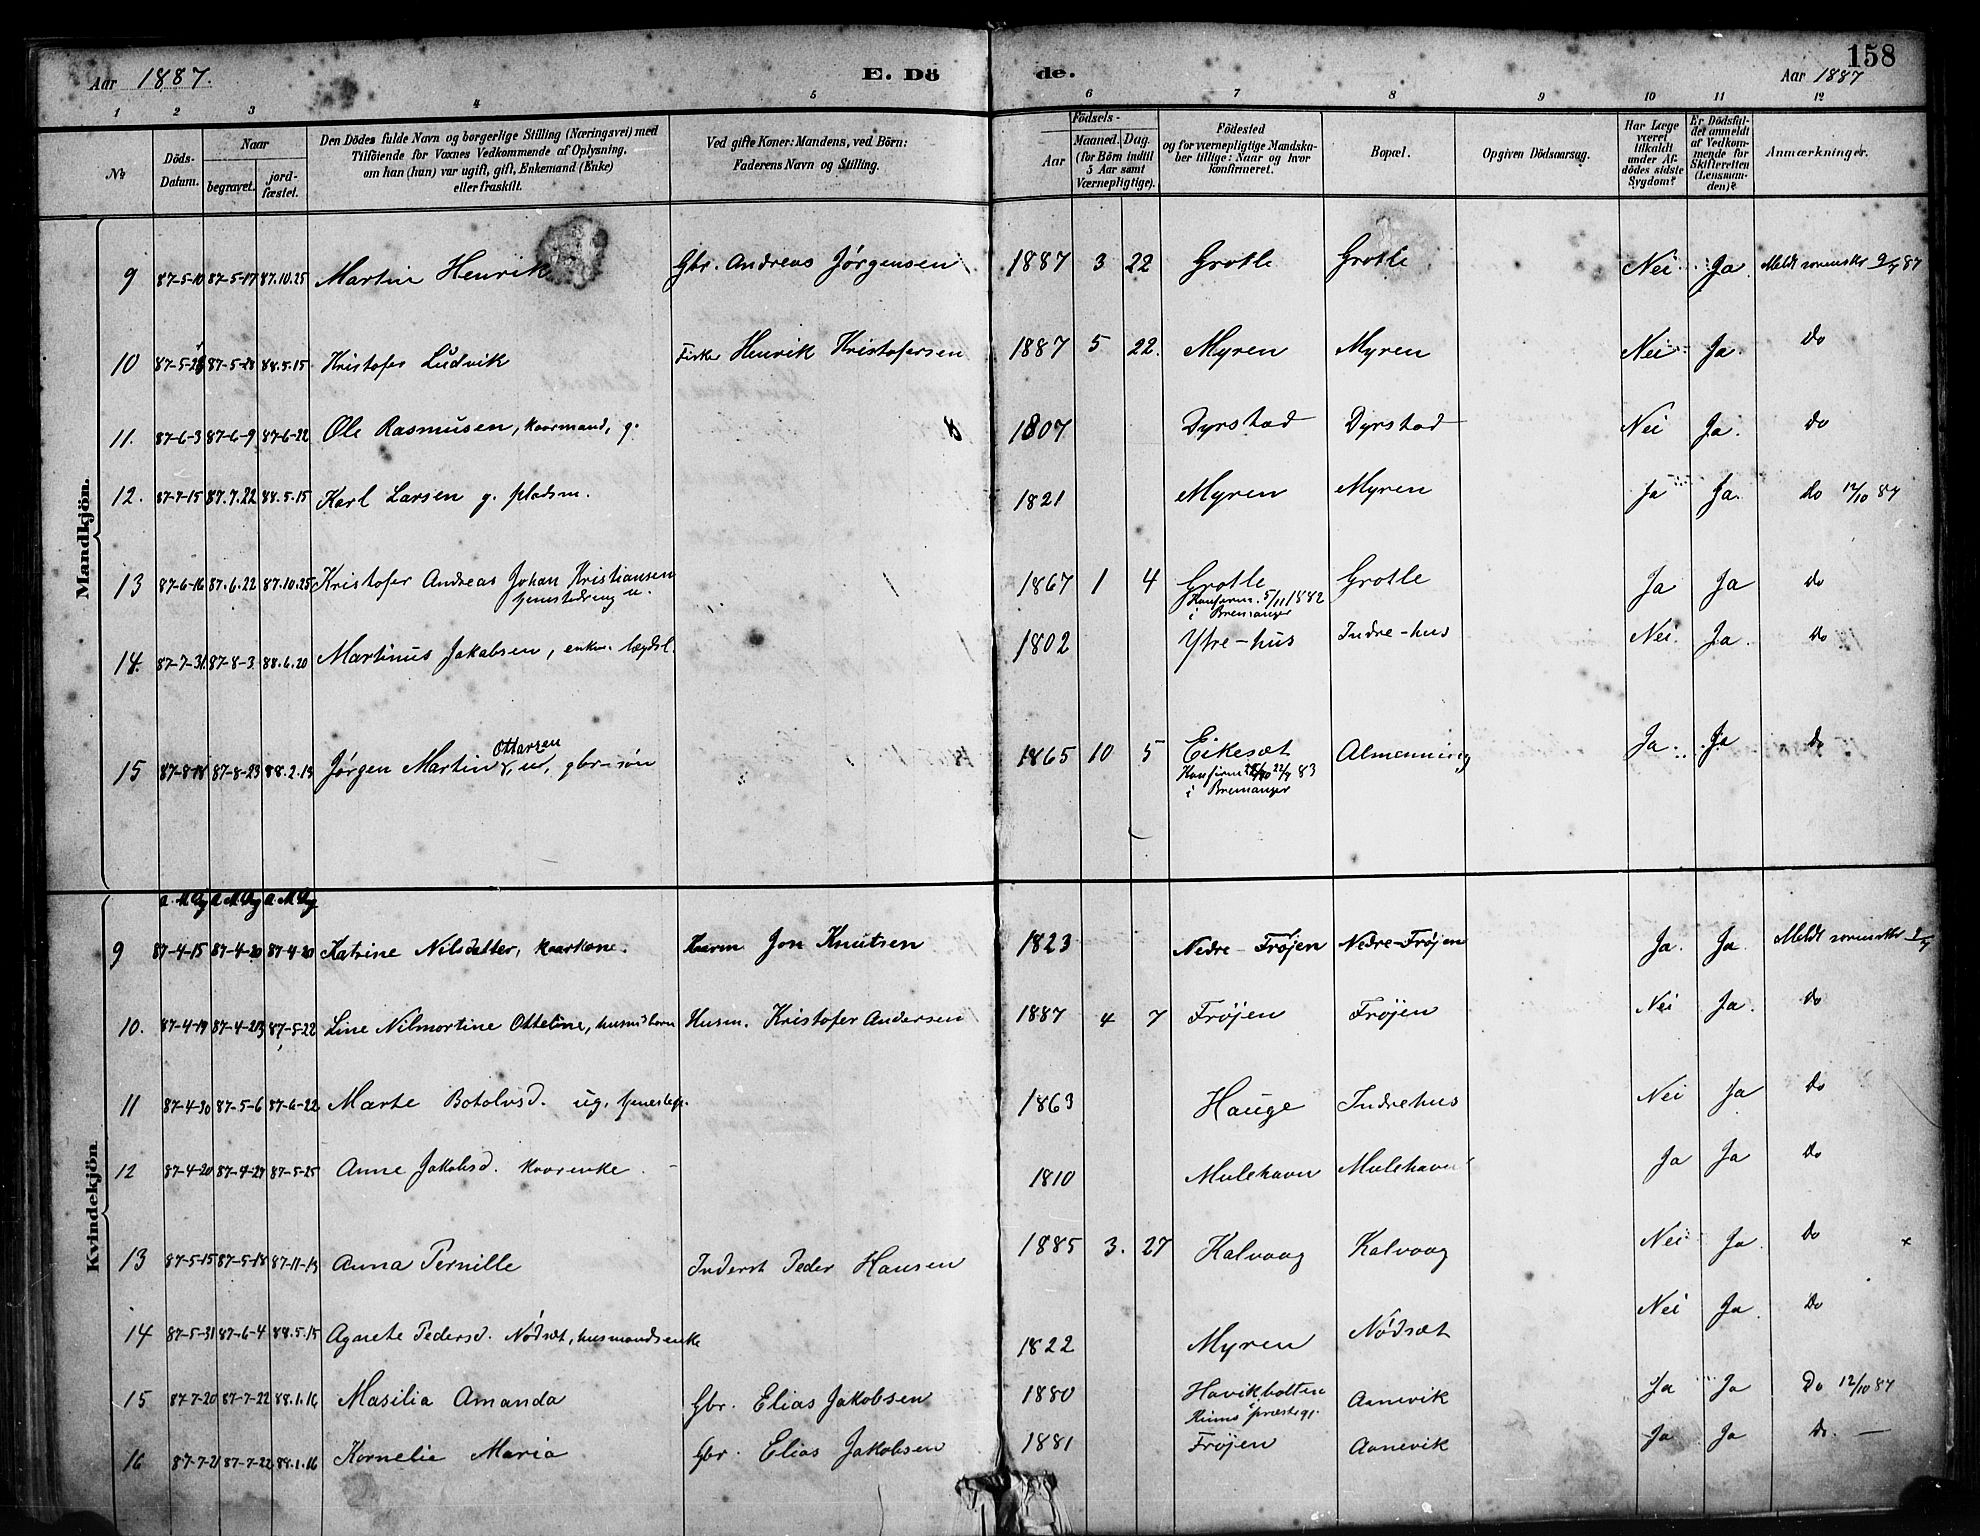 158
Aar 1887. E. Dö de. Aar 1887
1 2 3 4 5 6 7 8 9 10 11 12
№ Döds-Datum. Naar begravet. jord-fæstet. Den Dödes fulde Navn og borgerlige Stilling (Næringsvei) med Tilföiende for Voxnes Vedkommende af Oplysning, om han (hun) var ugift, gift, Enkemand (Enke) eller fraskilt. Ved gifte Koner: Mandens, ved Börn: Faderens Navn og Stilling. Födsels- Aar Maaned. Dag. (for Börn indtil 5 Aar samt Værnepligtige). Födested og for værnepligtige Mandskaber tillige: Naar og hvor konfirmeret. Bopæl. Opgiven Dödsaarsag. Har Læge været tilkaldt under Afdödes sidste Sygdom? Er Dödsfaldet anmeldt af Vedkommende for Skifteretten (Lensmanden)? Anmærkninger.
Mandkjön.
9 87-5-10 87-5-17 87.10.25 Martin Henrik Gbr. Andreas Jørgensen 1887 3 22 Grotle Grotle Nei Ja Meldt sorenskr 87
10 87-5-28 87-5-28 88.5.15 Kristofer Ludvik Fisker Henrik Kristofersen 1887 5 22. Myren Myren Nei Ja. Do
11. 87-6-3 87-6-9 87-6-22 Ole Rasmusen, kaarmand, g. 1807 Dyrstad Dyrstad Nei Ja. Do
12. 87-7-15 87.7.22 88.5.15 Karl Larsen g. pladsm. 1821 Myren Myren Ja Ja. Do 12/10 87
13 87-6-16 87.6.22 87.10.25 Kristofer Andreas Johan Kristiansen 1867 1 4 Grotle Grotle Ja Ja Do
tjenestedreng u. Konfirm. 5/11 1882
i Bremanger
14. 87-7-31 87-8-3 88.6.20 Martinus Jakobsen, enkem. lægdsl. 1802 Ytre-hus Indre-hus Nei. Ja. Do
Ottarsen
15 87-8-18 87-8-23 88.2.13 Jørgen Martin, u, gbr-søn 1865 10 5 Eikesæt Almenning Ja Ja Do
Konfirm 83
i Bremanger
Kvindekjön
a. M Dg a M Dg a M Dg
9 87-4-15 87-4-20 87-4-20 Katrine Nilsdatter, kaarkone. Kaarm Jon Knutsen 1823 Nedre-Frøjen Nedre-Frøjen Ja. Ja. Meldt sorenskr
10. 87-4-19 87-4-23 87-5-22 Line Nilmortine Otteline, husmdsbarn Husm. Kristofer Andersen 1887 4 7 Frøjen Frøjen Nei Ja. Do
11 87-4-30 87-5-6 87-6-22 Marte Botolvsd. ug. 1863 Hauge Indrehus Nei Ja Do
12 87-4-20 87-4-27 87-5-25 Anne Jakobsd. kaarenke 1810 Mulehavn Mulehavn Ja Ja Do
13 87-5-15 87-5-18 87-11-13 Anna Pernille Inderst Peder Hansen 1885 3. 27 Kalvaag Kalvaag Nei Ja Do
14 87-5-31 87-6-4 88.5.15 Agnete Pedersd. Nødsæt, husmandsenke 1822 Myren Nødsæt Nei Ja Do
15 87-7-20 87-7-22 88.1.16 Masilia Amanda Gbr. Elias Jakobsen 1880 Havikbotten Aanevik Ja Ja Do 12/10 87
Kinns præstegj.
16 87-7-21 87-7-22 88.1.16 Kornelie Maria Gbr. Elias Jakobsen 1881 Frøjen Aanevik Ja Ja Do. —